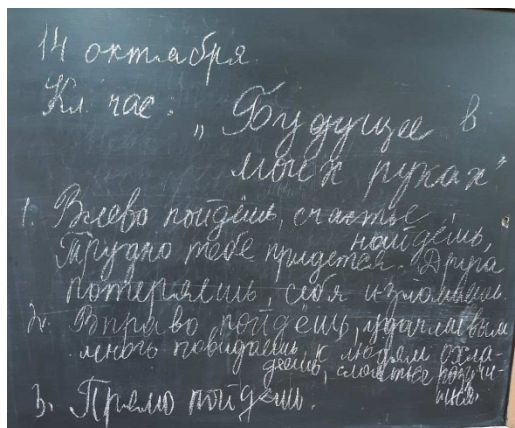 14 октября.
Кл. час: „Будущее в
моих руках"
1. Влево пойдёшь, счастье
найдёшь,
Трудно тебе придется. Друга
потеряешь, себя изломаешь.
2. Вправо пойдёшь, удачливым
много повидаешь, к людям охла-
деешь,
3. Прямо пойдёшь.